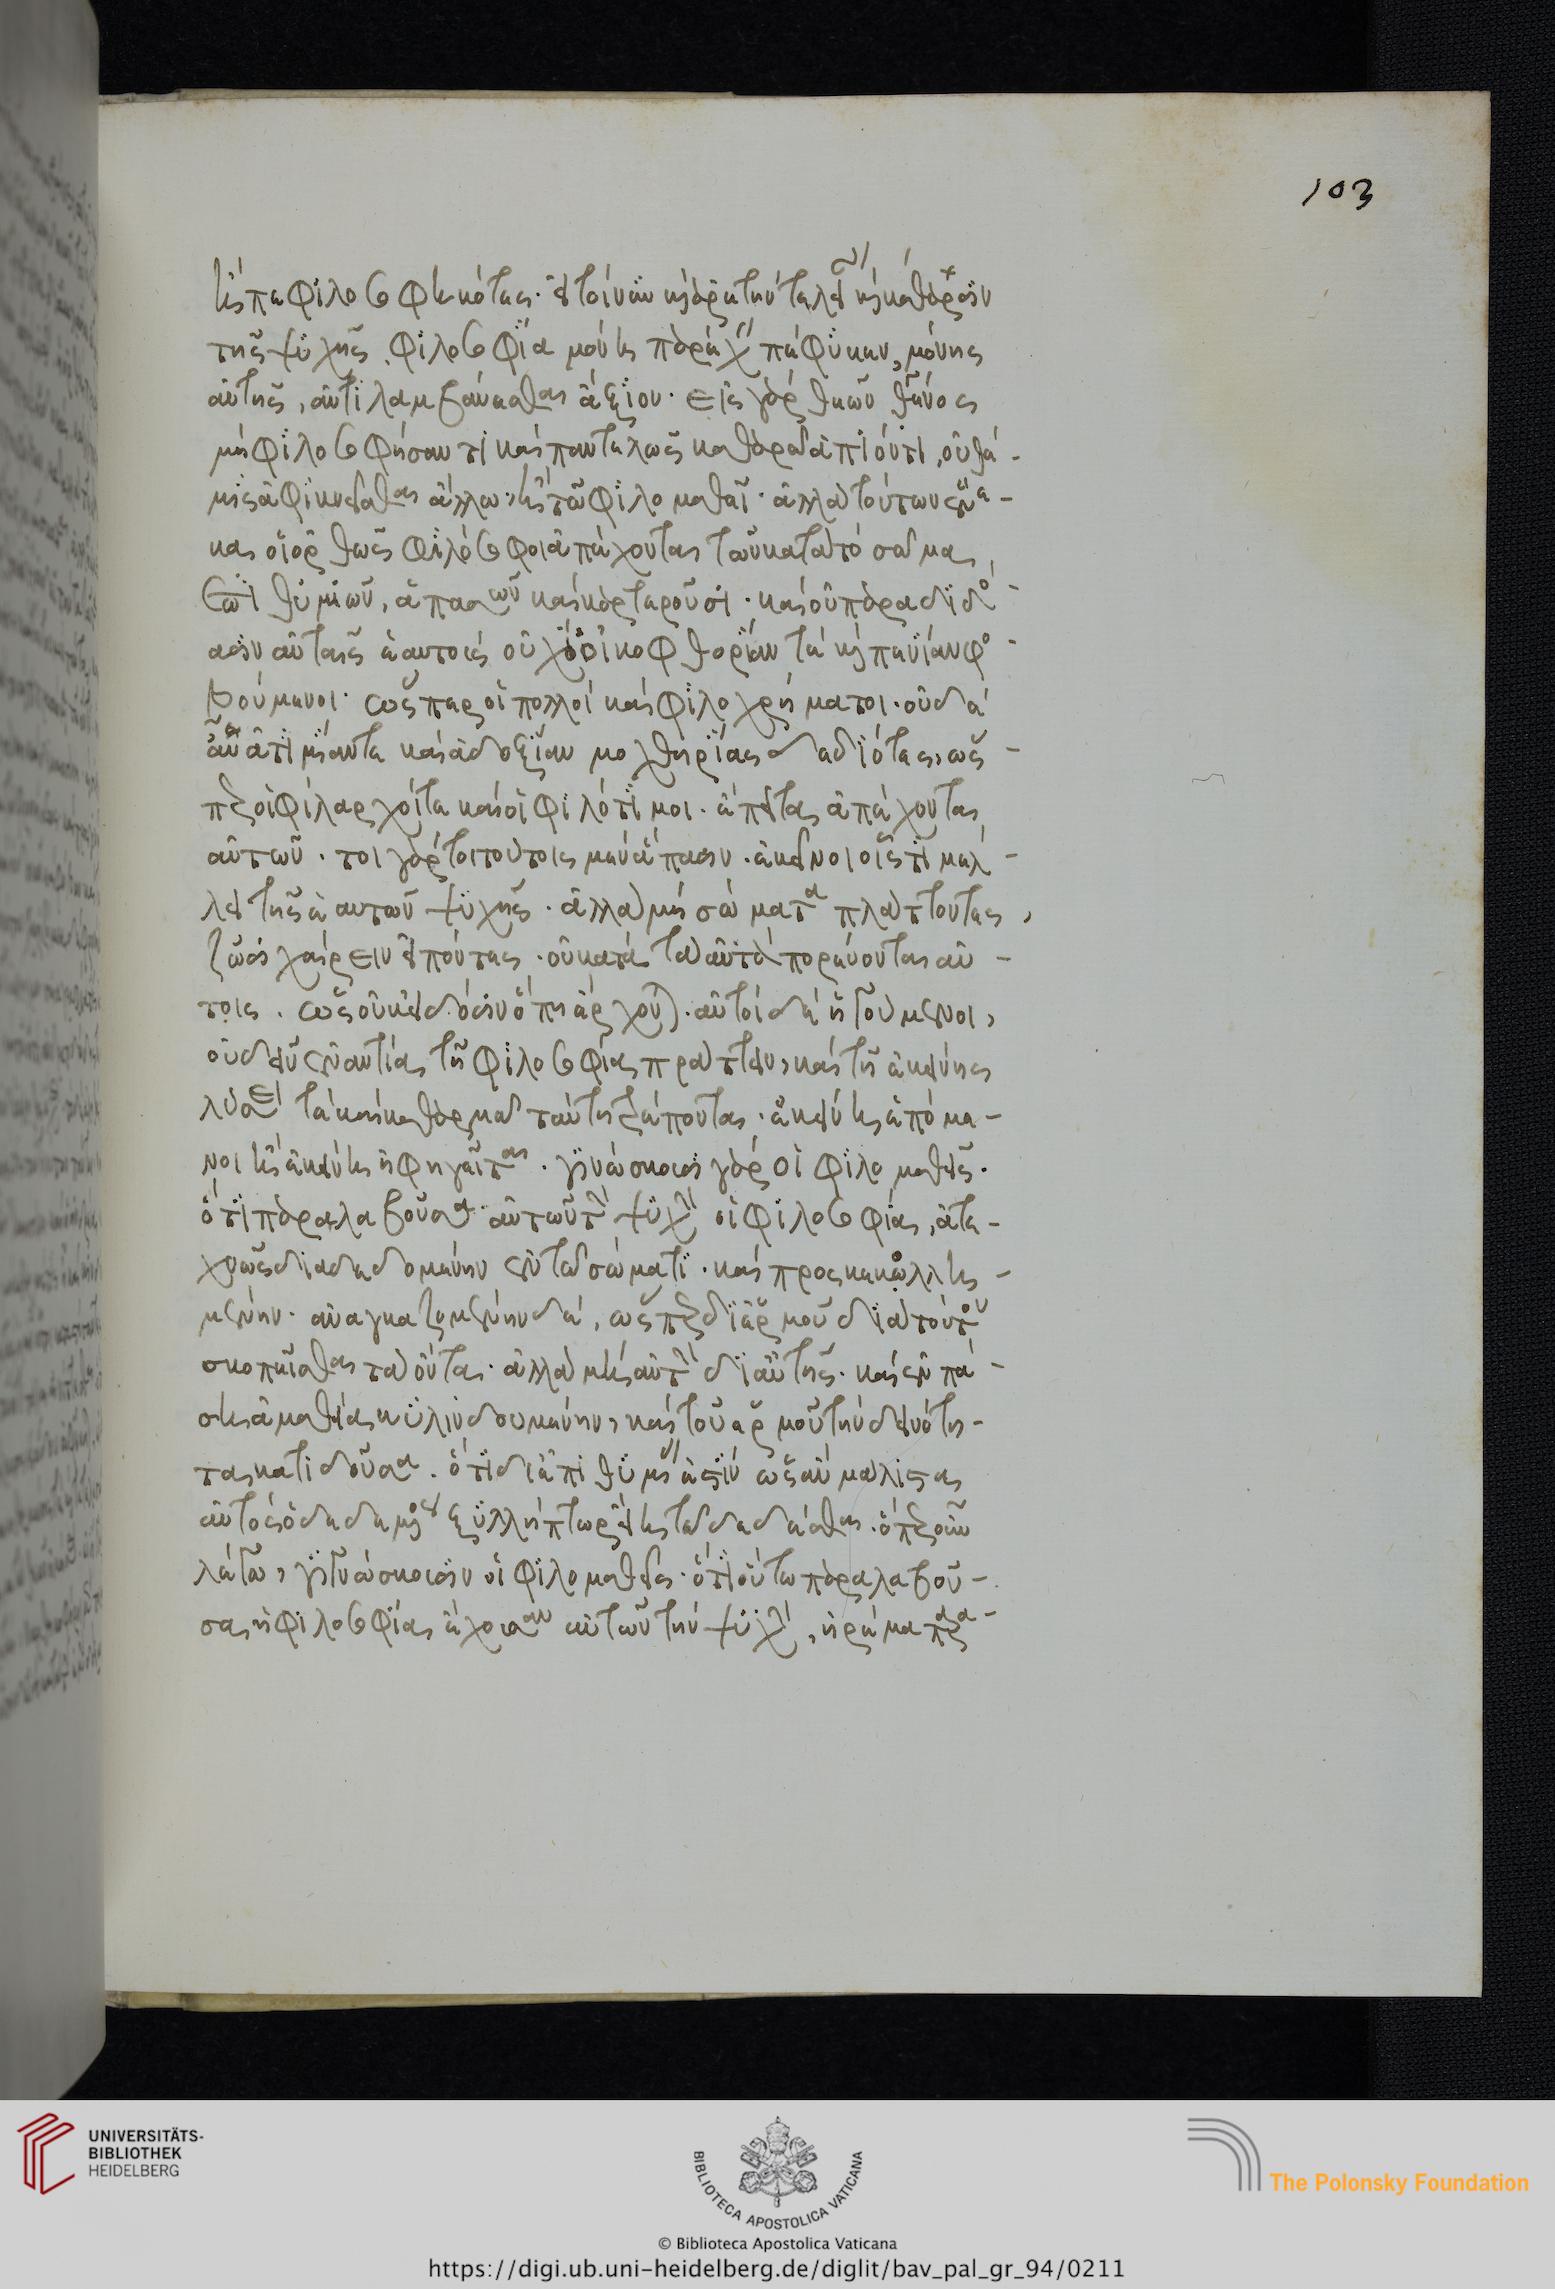 ἢ πεφιλοσοφηκότες. εἰ τοίνυν καὶ ἀρετὴν τελείαν καὶ κάθαρσιν
τῆς ψυχῆς φιλοσοφία μόνη παρέχειν πέφυκεν, μόνης
αὐτῆς, ἀντιλαμβάνεσθαι ἄξιον. εἰς γὰρ θεῶν γένος
μὴ φιλοσοφήσαντι καὶ παντελῶς καθαρῷ ἀπιόντι, οὐ θέ-
μις ἀφικνεῖσθαι ἄλλῳ, ἢ τῷ φιλομαθεῖ. ἀλλὰ τούτων ἕνε-
κα οἱ ὀρθῶς φιλόσοφοι ἀπέχονται τῶν κατὰ τὸ σῶμα
ἐπιθυμιῶν, ἁπασῶν καὶ καρτεροῦσι. καὶ οὐ παραδιδό-
ασιν αὐταῖς ἑαυτοὺς οὐχ οἰκοφθορίαν τε καὶ πενίαν φο-
βούμενοι. ὥσπερ οἱ πολλοὶ καὶ φιλοχρήματοι. οὐδὲ
αὖ ἀτιμίαν τε καὶ ἀδοξίαν μοχθηρίας δεδιότες, ὥσ-
περ οἱ φίλαρχοί τε καὶ οἱ φιλότιμοι. ἔπειτα ἀπέχονται
αὐτῶν. τοιγάρτοι τούτοις μὲν ἅπασιν. ἐκεῖνοι οἷς τι μέλ-
λει τῆς ἑαυτῶν ψυχῆς. ἀλλὰ μὴ σώματα πλάττοντες,
ζῶσι χαίρειν εἰπόντες. οὐ κατὰ ταὐτὰ πορεύονται αὐ-
τοῖς. ὡς οὐκ εἰδόσιν ὅπη ἔρχονται. αὐτοὶ δὲ ἡγούμενοι,
οὐ δεῖν ἐναντία τῇ φιλοσοφίᾳ πράττειν, καὶ τῇ ἐκείνης
λύσει τε καὶ καθαρμῷ ταύτῃ τρέπονται. ἐκείνῃ ἑπόμε-
νοι ᾗ ἐκείνη ὑφηγεῖται. γινώσκουσι γὰρ οἱ φιλομαθεῖς.
ὅτι παραλαβοῦσα αὐτῶν τὴν ψυχὴν ἡ φιλοσοφία, ἀτε-
χνῶς διαδεδεμένην ἐν τῷ σώματι. καὶ προσκεκολλη-
μένην. ἀναγκαζομένην δὲ, ὥσπερ δι' εἱργμοῦ διὰ τούτου
σκοπεῖσθαι τὰ ὄντα. ἀλλὰ μὴ αὐτὴν δι' αὑτῆς. καὶ ἐν πά-
σῃ ἀμαθίᾳ κυλινδουμένην, καὶ τοῦ εἱργμοῦ τὴν δεινότη-
τα κατιδοῦσα. ὅτι δι' ἐπιθυμίας ἐστὶν ὡς ἂν μάλιστα
αὐτὸς ὁ δεδεμένος ξυλλήπτωρ εἴη τῷ δεδέσθαι. ὅπερ οὖν
λέγω, γιγνώσκουσιν οἱ φιλομαθεῖς. ὅτι οὕτω παραλαβοῦ-
σα ἡ φιλοσοφία ἔχουσαν αὐτῶν τὴν ψυχὴν, ἠρέμα παρα-
103
UNIVERSITÄTS-
BIBLIOTHEK
HEIDELBERG
BIBLIOTECA APOSTOLICA VATICANA
The Polonsky Foundation
© Biblioteca Apostolica Vaticana
https://digi.ub.uni-heidelberg.de/diglit/bav_pal_gr_94/0211